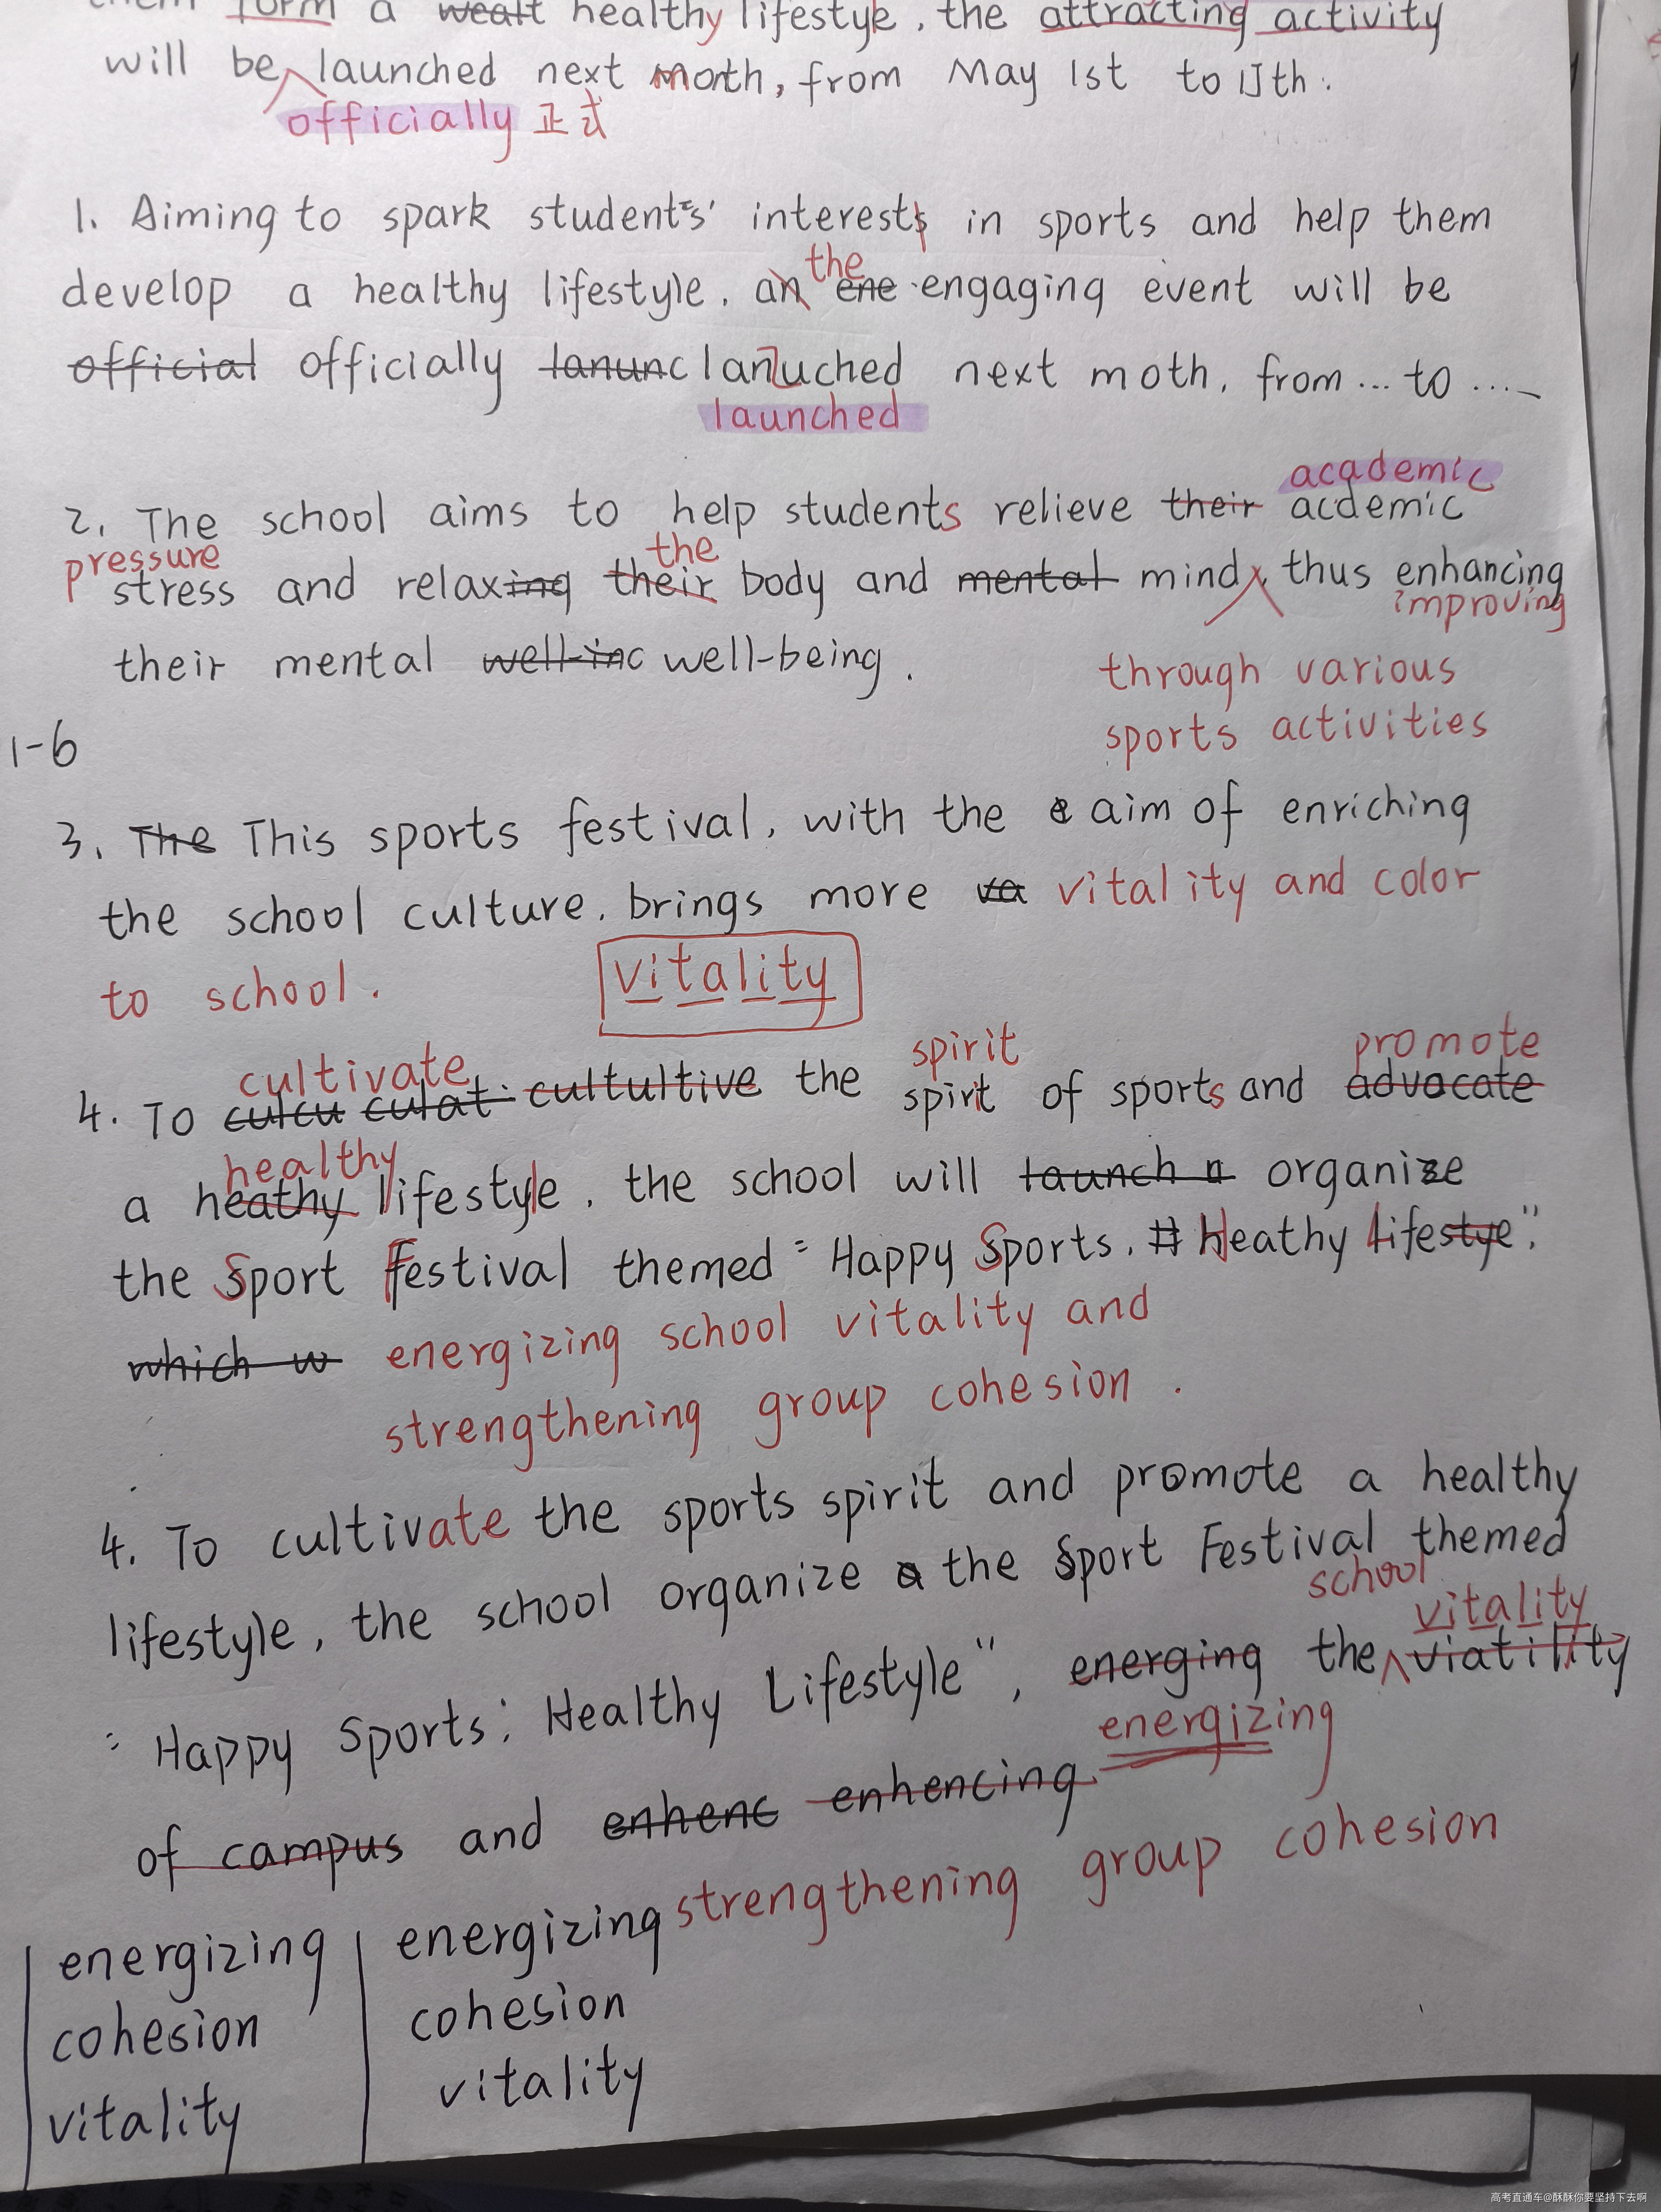 them form a wealt healthy lifestyle, the attracting activity
will be launched next month, from May 1st to
officially 正式
1. Aiming to spark student's' interests in sports and help them
the
develop a healthy lifestyle, an ene engaging event will be
official officially lanunc lanuched next moth, from ... to ....
launched
academic
2. The school aims to help students relieve their acdemic
pressure the
stress and relaxing their body and mental mind, thus enhancing
improving
their mental well-inc well-being.
through various
sports activities
1-6
3. The This sports festival, with the aim of enriching
the school culture, brings more va vitality and color
to school.
vitality
cultivate spirit promote
4. To culcu culat cultultive the spirit of sports and advocate
healthy
a heathy lifestyle, the school will launch a organize
the Sport Festival themed "Happy Sports, H Heathy Lifestye".
which w energizing school vitality and
strengthening group cohesion.
4. To cultivate the sports spirit and promote a healthy
lifestyle, the school organize a the Sport Festival themed
school vitality
"Happy Sports: Healthy Lifestyle", energing the viatility
energizing
of campus and enhenc enhencing
strengthening group cohesion
energizing energizing
cohesion cohesion
vitality vitality
高考直通车@酥酥你要坚持下去啊